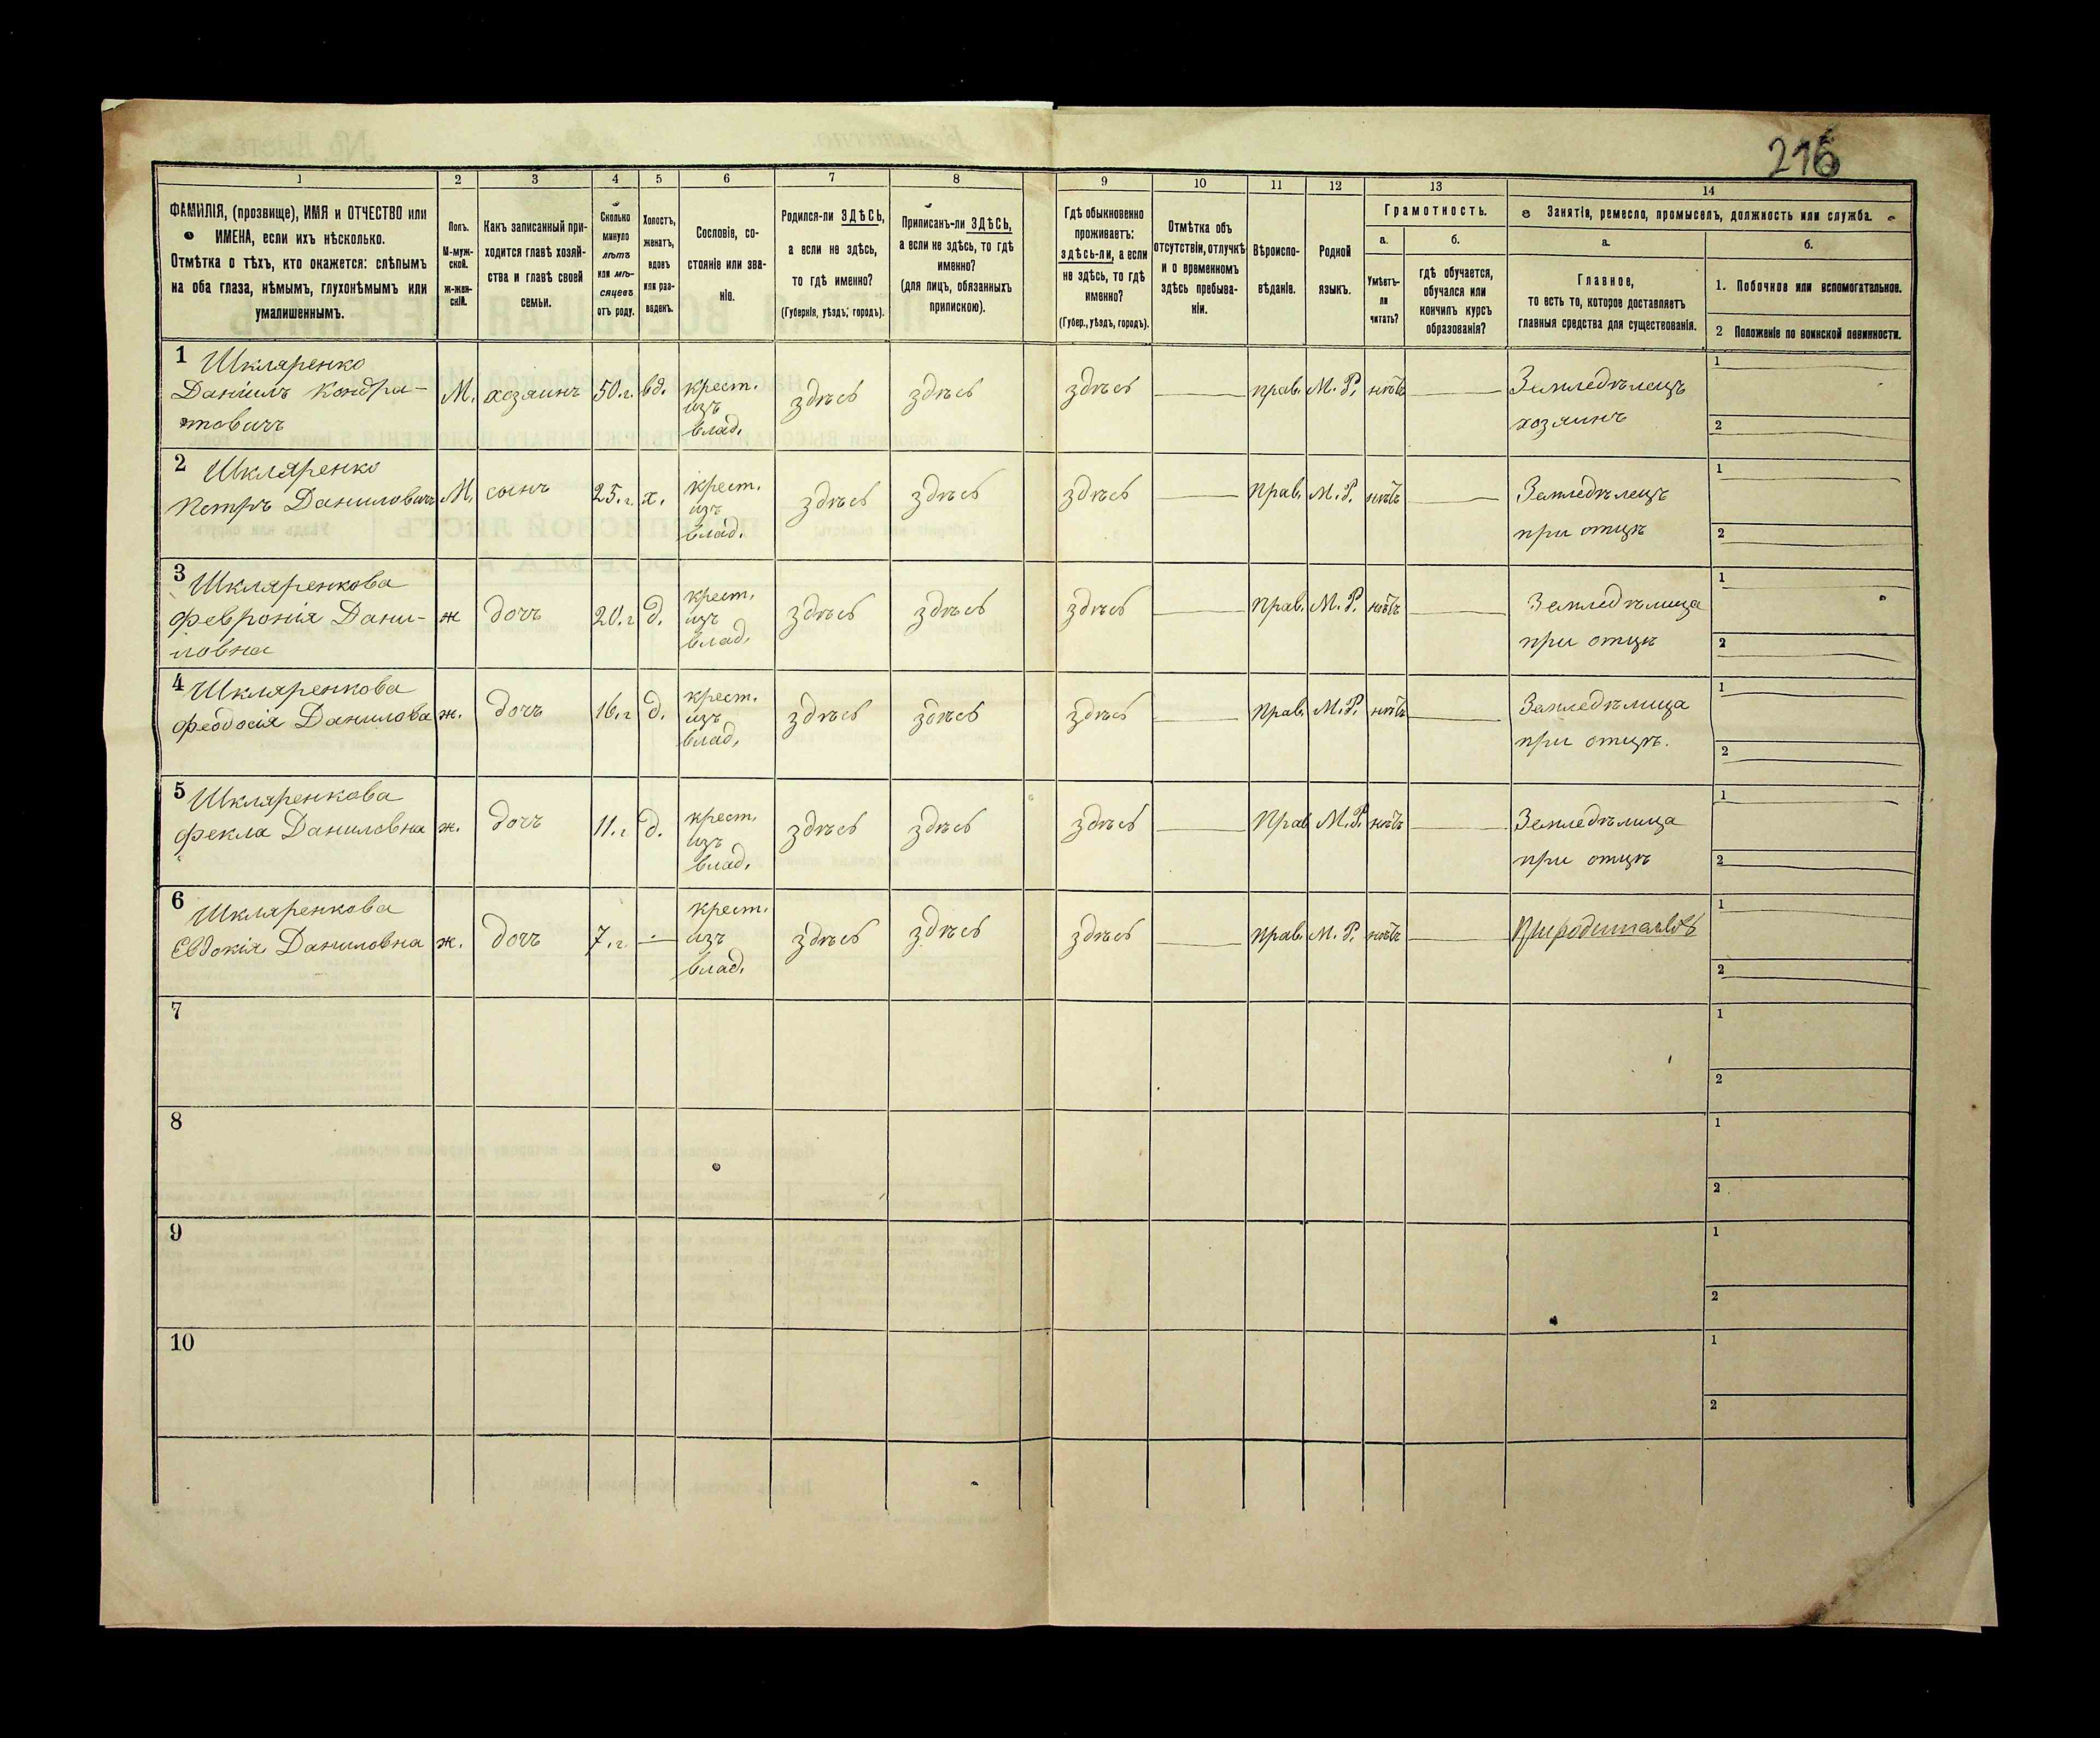 216
1 2 3 4 5 6 7 8 9 10 11 12 13 14
ФАМИЛІЯ, (прозвище), ИМЯ и ОТЧЕСТВО или
ИМЕНА, если ихъ нѣсколько.
Отмѣтка о тѣхъ, кто окажется: слѣпымъ
на оба глаза, нѣмымъ, глухонѣмымъ или
умалишеннымъ.
Полъ.
М-муж-
ской.
ж-жен-
скій.
Какъ записанный при-
ходится главѣ хозяй-
ства и главѣ своей
семьи.
Сколько
минуло
лѣтъ
или мѣ-
сяцевъ
отъ роду.
Холостъ,
женатъ,
вдовъ
или раз-
веденъ.
Сословіе, со-
стояніе или зва-
ніе.
Родился-ли ЗДѢСЬ,
а если не здѣсь,
то гдѣ именно?
(Губернія, уѣздъ, городъ).
Приписанъ-ли ЗДѢСЬ,
а если не здѣсь, то гдѣ
именно?
(для лицъ, обязанныхъ
припискою).
Гдѣ обыкновенно
проживаетъ:
здѣсь-ли, а если
не здѣсь, то гдѣ
именно?
(Губер., уѣздъ, городъ).
Отмѣтка объ
отсутствіи, отлучкѣ
и о временномъ
здѣсь пребыва-
ніи.
Вѣроиспо-
вѣданіе.
Родной
языкъ.
Грамотность.
а.
Умѣетъ-
ли
читать?
б.
гдѣ обучается,
обучался или
кончилъ курсъ
образованія?
Занятіе, ремесло, промыселъ, должность или служба.
а.
Главное,
то есть то, которое доставляетъ
главныя средства для существованія.
б.
1. Побочное или вспомогательное.
2 Положеніе по воинской повинности.
1 Шкляренко
Даніилъ Кондра-
товичъ
М. хозяинъ 50.г. вд. крест.
изъ
влад.
здѣсь здѣсь здѣсь прав. М. Р. нѣтъ Земледѣлецъ
хозяинъ
1
2
2 Шкляренко
Петръ Даниловичъ
М. сынъ 25.г. х. крест.
изъ
влад.
здѣсь здѣсь здѣсь Прав. М. Р. нѣтъ Земледѣлецъ
при отцѣ
1
2
3 Шкляренкова
Февронія Дани-
ловна
ж дочь 20.г д. крест.
изъ
влад.
здѣсь здѣсь здѣсь Прав. М. Р. нѣтъ Земледѣлица
при отцѣ
1
2
4 Шкляренкова
Феодосія Данилова
ж. дочь 16.г д. крест.
изъ
влад.
здѣсь здѣсь здѣсь Прав. М. Р. нѣтъ Земледѣлица
при отцѣ.
1
2
5 Шкляренкова
Фекла Даниловна
ж. дочь 11.г д. крест.
изъ
влад.
здѣсь здѣсь здѣсь Прав М. Р. нѣтъ Земледѣлица
при отцѣ
1
2
6 Шкляренкова
Евдокія Даниловна
ж. дочь 7.г. крест.
изъ
влад.
здѣсь здѣсь здѣсь Прав. М. Р. нѣтъ
1
2
7
1
2
8
1
2
9
1
2
10
1
2